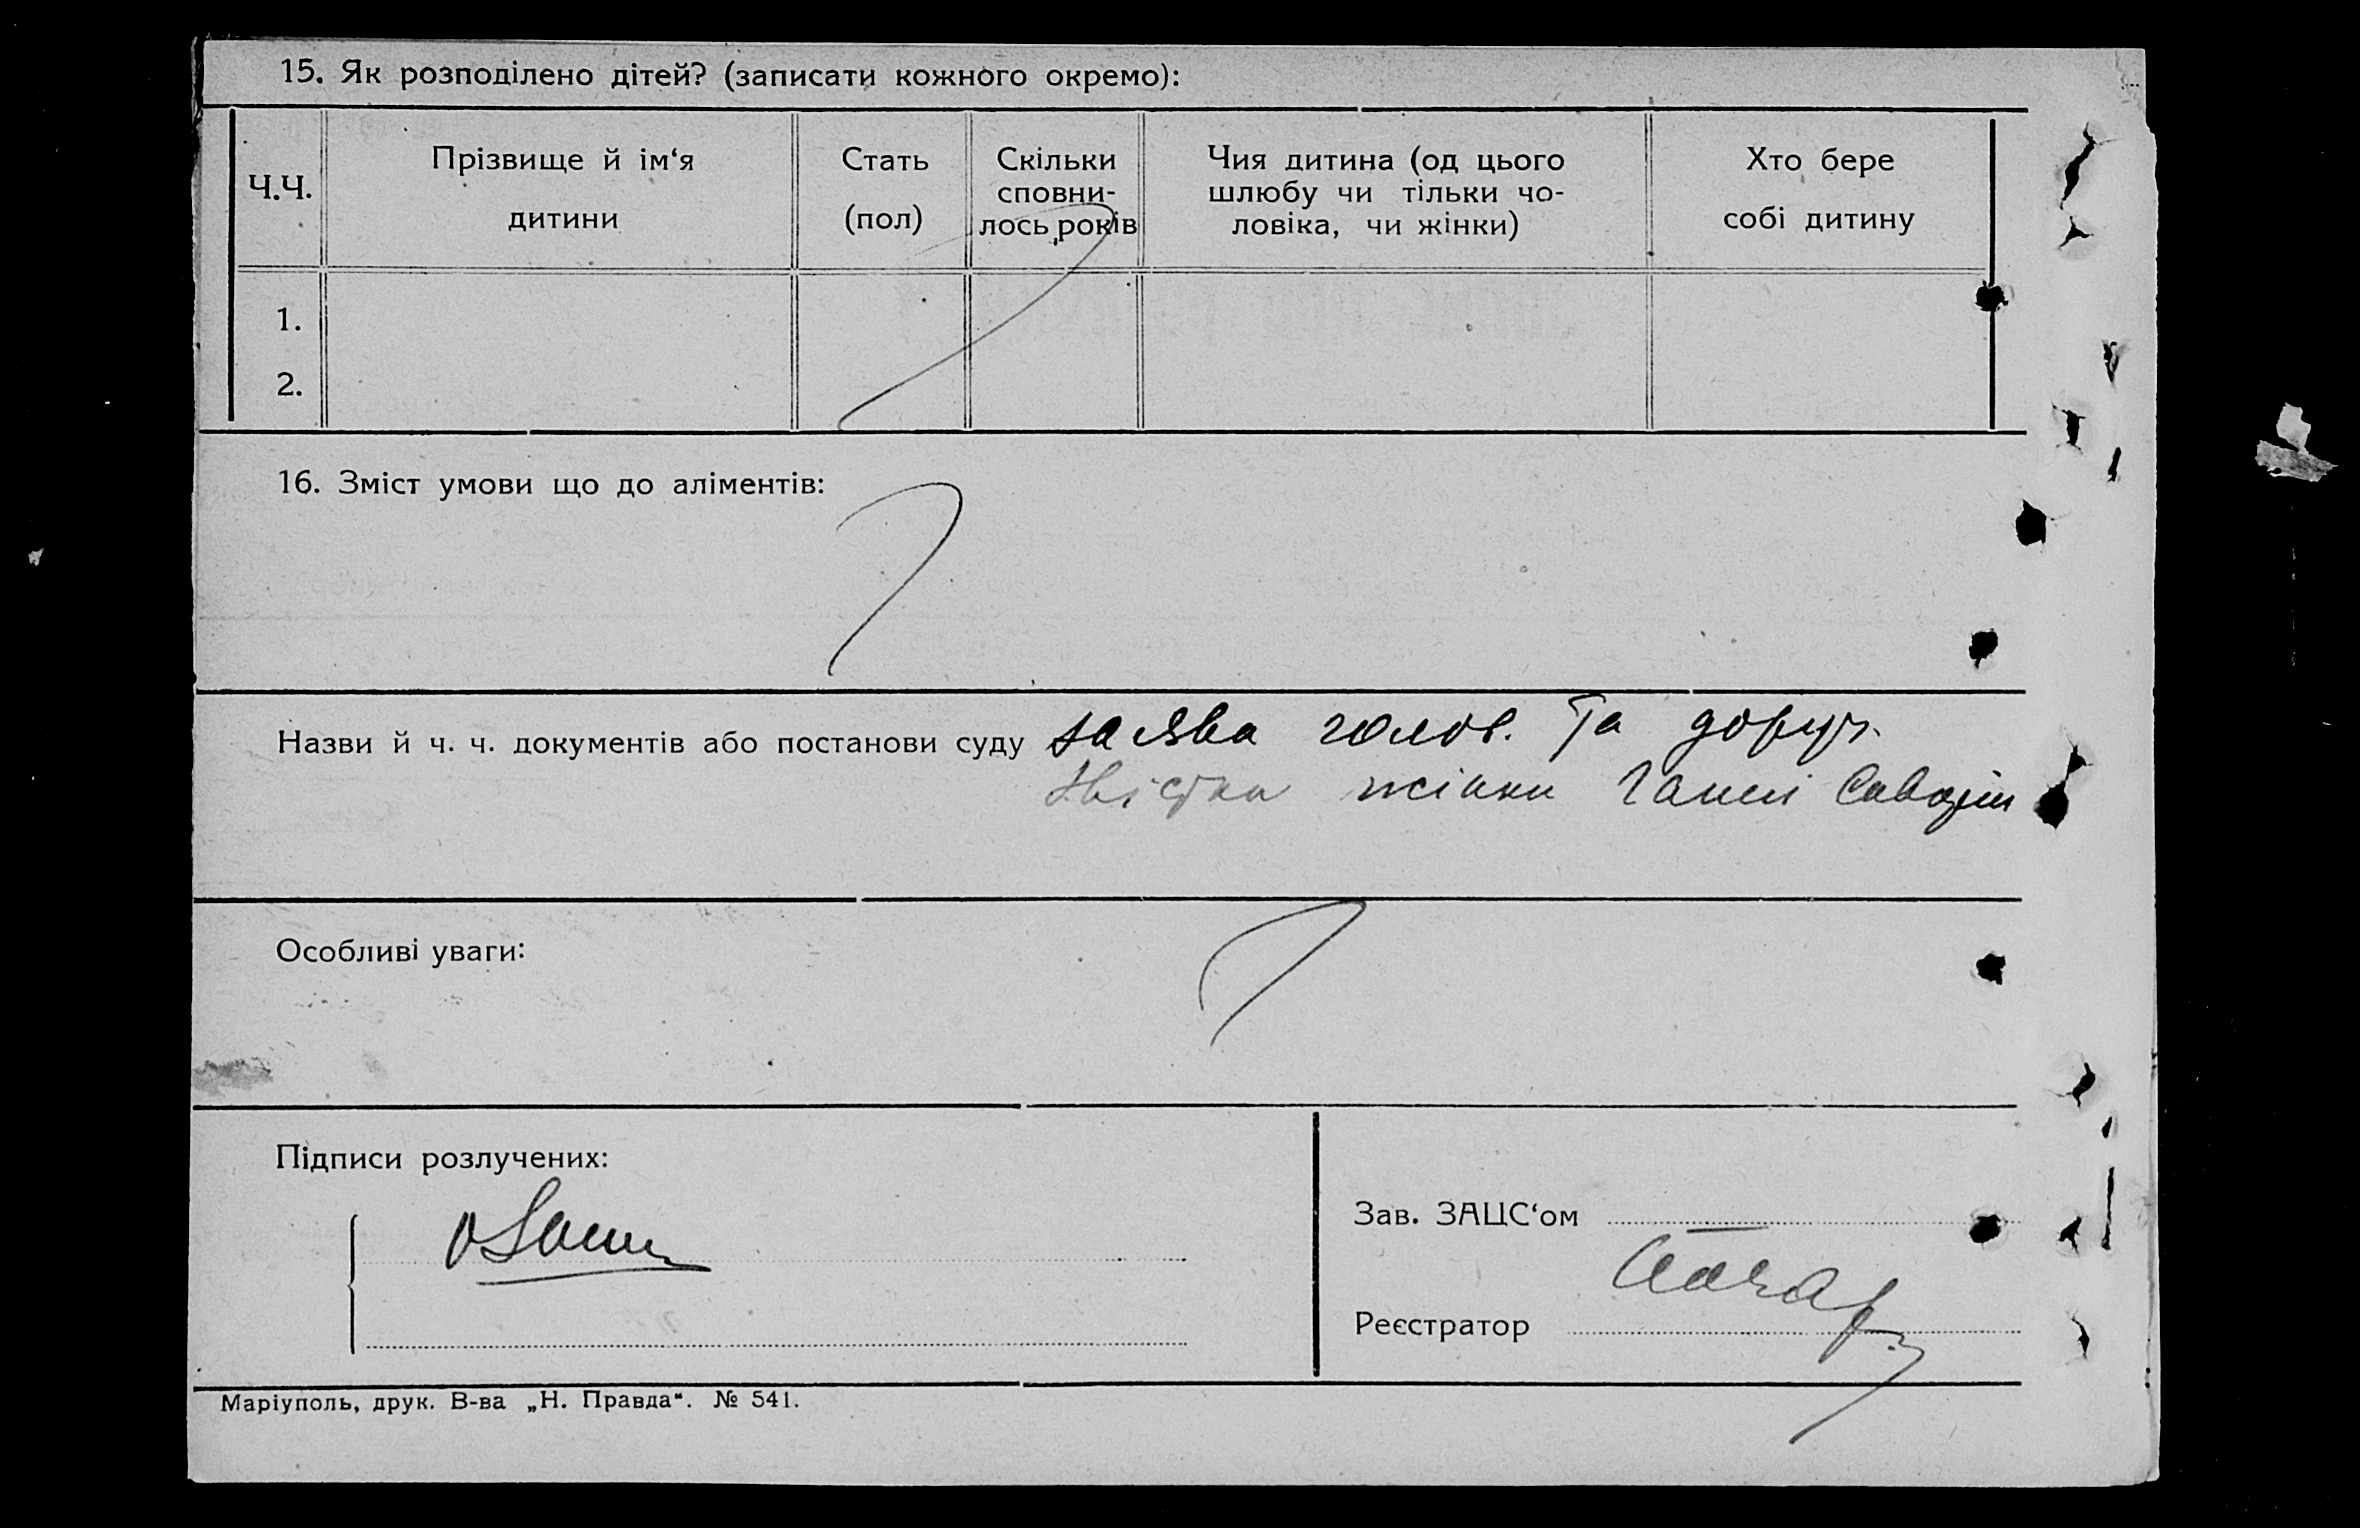 15. Як розподілено дітей? (записати кожного окремо):
Ч.Ч.
Прізвище й ім‘я
дитини
Стать
(пол)
Скільки
сповни-
лось років
Чия дитина (од цього
шлюбу чи тільки чо-
ловіка, чи жінки)
Хто бере
собі дитину
1.
2.
16. Зміст умови що до аліментів:
Назви й ч. ч. документів або постанови суду заява голов. та доруч.
звістка жінки Ганни
Особливі уваги:
Підписи розлучених:
Зав. ЗАЦС‘ом
Реєстратор
Маріуполь, друк. В-ва „Н. Правда“. № 541.